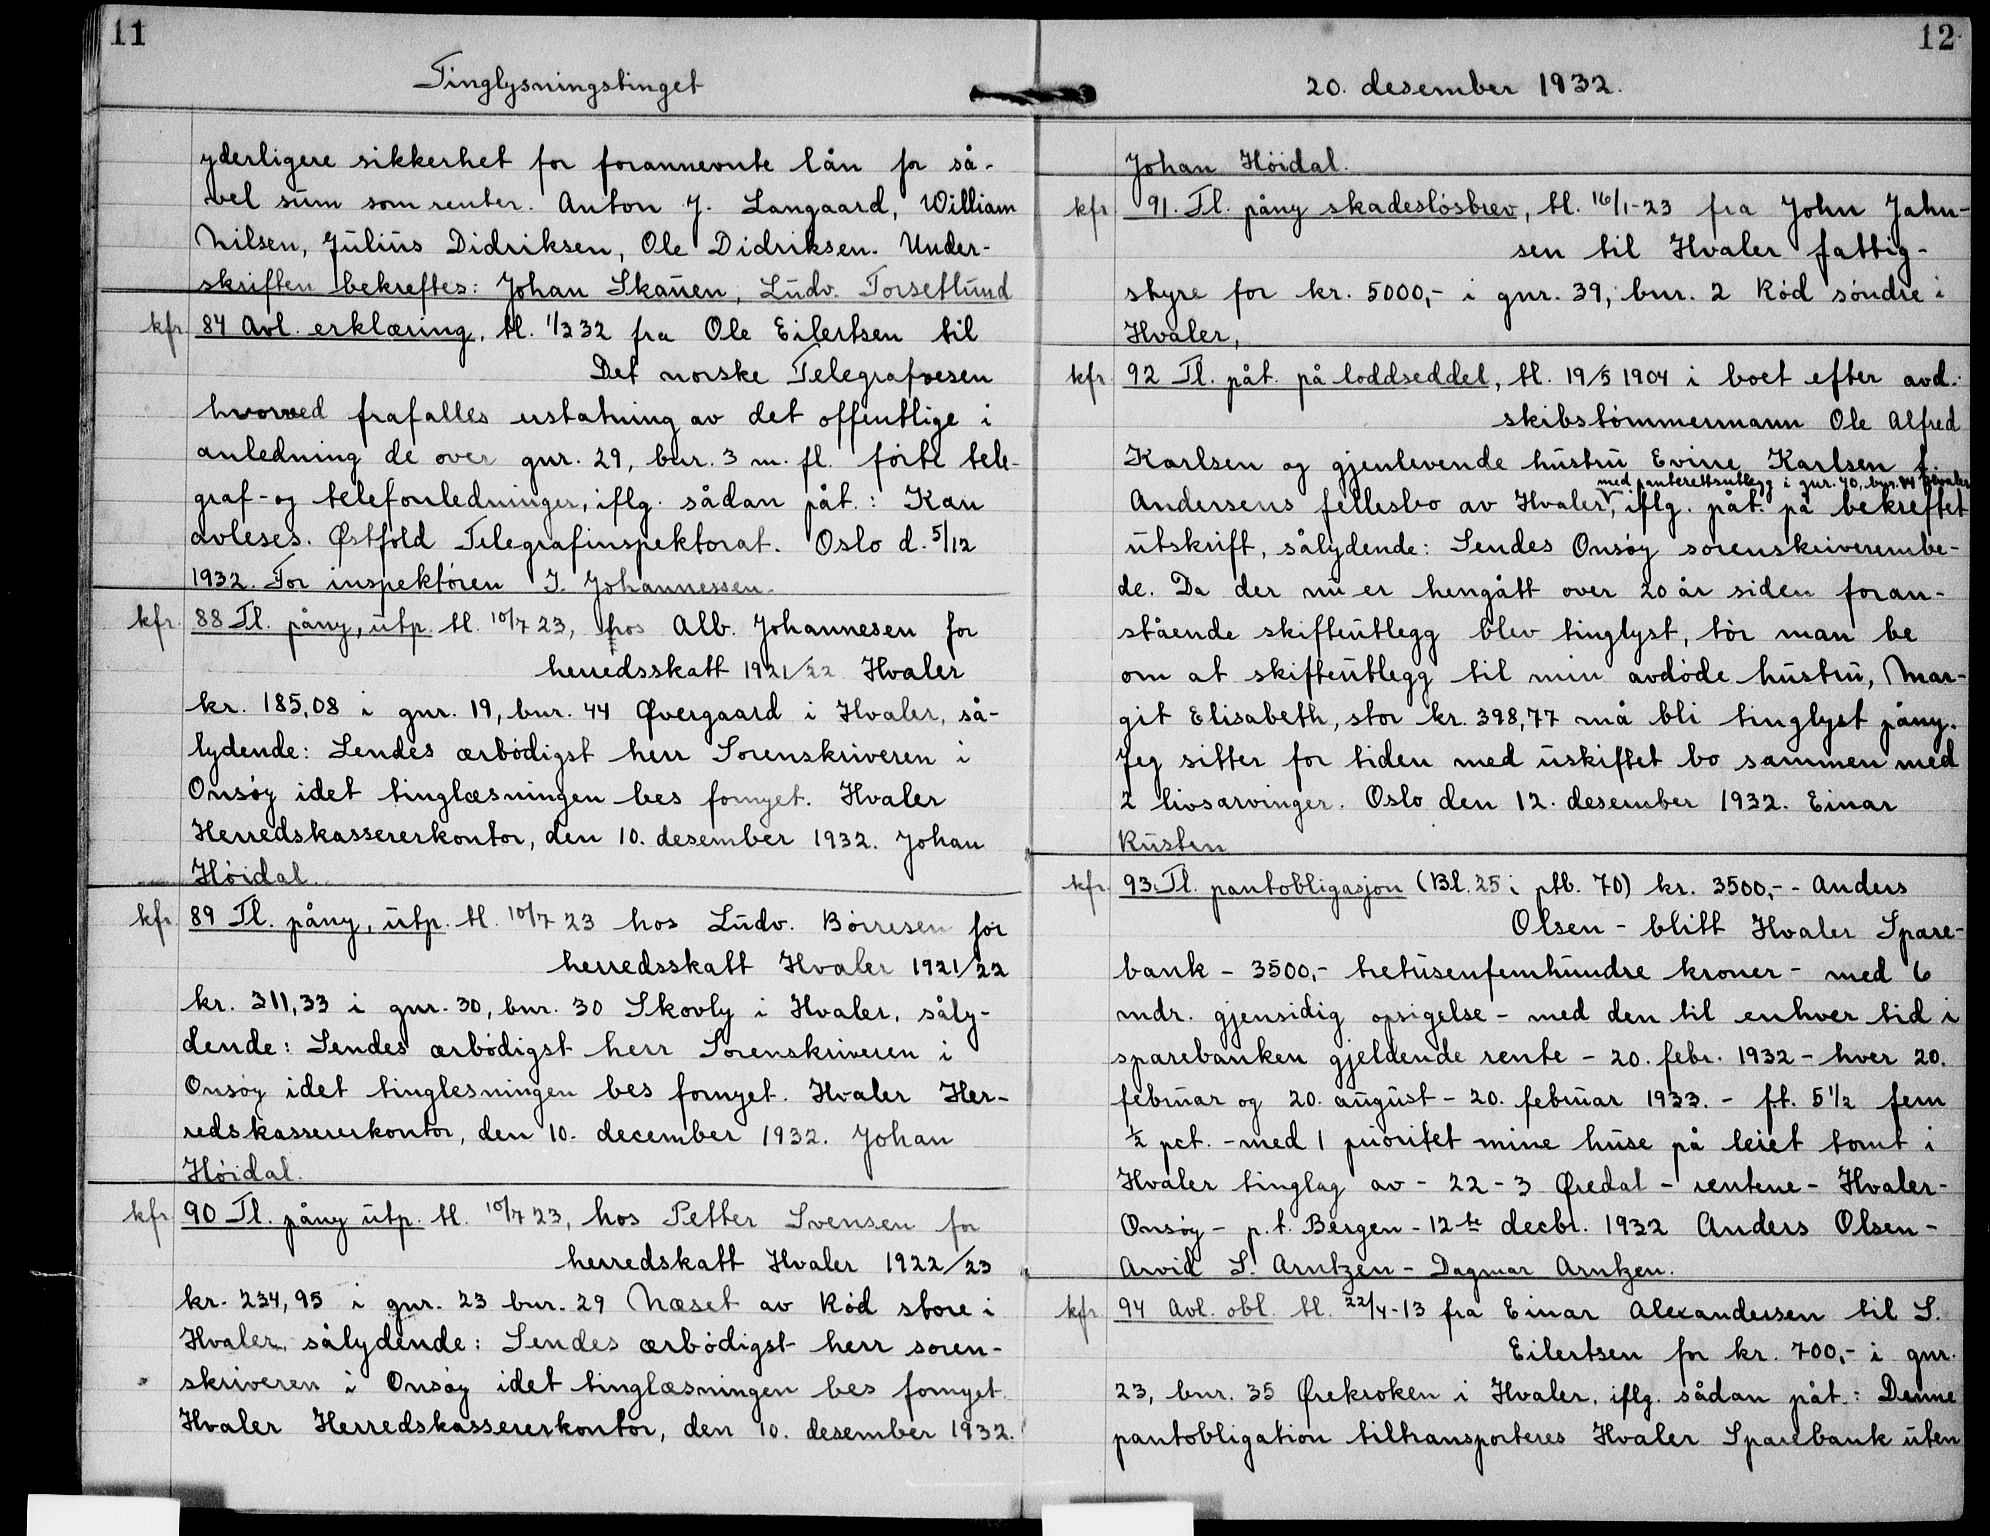 11
Tinglysningstinget
yderligere sikkerhet for forannevnte lån for så-
vel sum som renter. Anton J. Langaard, William
Nilsen, Julius Didriksen, Ole Didriksen. Under-
skriften bekreftes: Johan Skauen, Ludv. Torsetlund
kfr. 84 Avl. erklæring, tl. 1/3 32 fra Ole Eilertsen til
Det norske Telegrafvesen
hvorved frafalles erstatning av det offentlige i
anledning de over gnr. 29, bnr. 3 m. fl. förte tele-
graf- og telefonledninger, iflg. sådan påt.: Kan
avleses. Østfold Telegrafinspektorat. Oslo d. 5/12
1932. For inspektören J. Johannessen.
kfr. 88 Tl. påny, utp. tl. 10/7 23, hos Alb. Johannesen for
herredsskatt 1921/22 Hvaler
kr. 185,08 i gnr. 19, bnr. 44 Øvergaard i Hvaler, så-
lydende: Sendes ærbödigst herr Sorenskriveren i
Onsöy idet tinglæsningen bes fornyet. Hvaler
Herredskassererkontor, den 10. desember 1932. Johan
Höidal.
kfr. 89 Tl. påny, utp. tl. 10/7 23 hos Ludv. Börresen for
herredsskatt Hvaler 1921/22
kr. 311,33 i gnr. 30, bnr. 30 Skovly i Hvaler, såly-
dende: Sendes ærbödigst herr Sorenskriveren i
Onsöy idet tinglesningen bes fornyet. Hvaler Her-
redskassererkontor, den 10. december 1932. Johan
Höidal.
kfr. 90 Tl. påny utp. tl. 10/7 23, hos Petter Svensen for
herredskatt Hvaler 1922/23
kr. 234,95 i gnr. 23 bnr. 29 Næset av Röd store i
Hvaler, sålydende: Sendes ærbödigst herr soren-
skriveren i Onsöy idet tinglæsningen bes fornyet.
Hvaler Herredskassererkontor, den 10. desember 1932.
12
20. desember 1932.
Johan Höidal.
kfr. 91. Tl. påny skadeslösbrev, tl. 16/1-23 fra John Jahn-
sen til Hvaler fattig-
styre for kr. 5000,- i gnr. 39, bnr. 2 Röd söndre i
Hvaler,
kfr. 92 Tl. påt. på loddseddel, tl. 19/5 1904 i boet efter avd.
skibstömmermann Ole Alfred
Karlsen og gjenlevende hustru Evine Karlsen f.
med panterettsutlegg i gnr. 40, bnr. 44 Hvaler
Andersens fellesbo av Hvaler, iflg. påt. på bekreftet
utskrift, sålydende: Sendes Onsöy sorenskriverembe-
de. Da der nu er hengått over 20 år siden foran-
stående skifteutlegg blev tinglyst, tör man be
om at skifteutlegg til min avdöde hustru, Mar-
git Elisabeth, stor kr. 398,77 må bli tinglyst påny.
Jeg sitter for tiden med uskiftet bo sammen med
2 livsarvinger. Oslo den 12. desember 1932. Einar
Kusten
kfr. 93. Tl. pantobligasjon (Bl. 25 i ptb. 70) kr. 3500,- - Anders
Olsen - blitt Hvaler Spare-
bank - 3500,- tretusenfemhundre kroner - med 6
mdr. gjensidig opsigelse - med den til enhver tid i
sparebanken gjeldende rente - 20. febr. 1932 - hver 20.
februar og 20. august - 20. februar 1933. - f.t. 5 1/2 fem
1/2 pct. - med 1 prioritet mine huse på leiet tomt i
Hvaler tinglag av - 22 - 3 Øredal - rentene - Hvaler -
Onsöy - p.t. Bergen - 12te decbr. 1932 Anders Olsen -
Arvid S. Arntzen - Dagmar Arntzen.
kfr. 94 Avl. obl. tl. 22/4-13 fra Einar Alexandersen til S.
Eilertsen for kr. 700,- i gnr.
23, bnr. 35 Örekroken i Hvaler. iflg. sådan påt.: Denne
pantobligation tiltransporteres Hvaler Sparebank uten